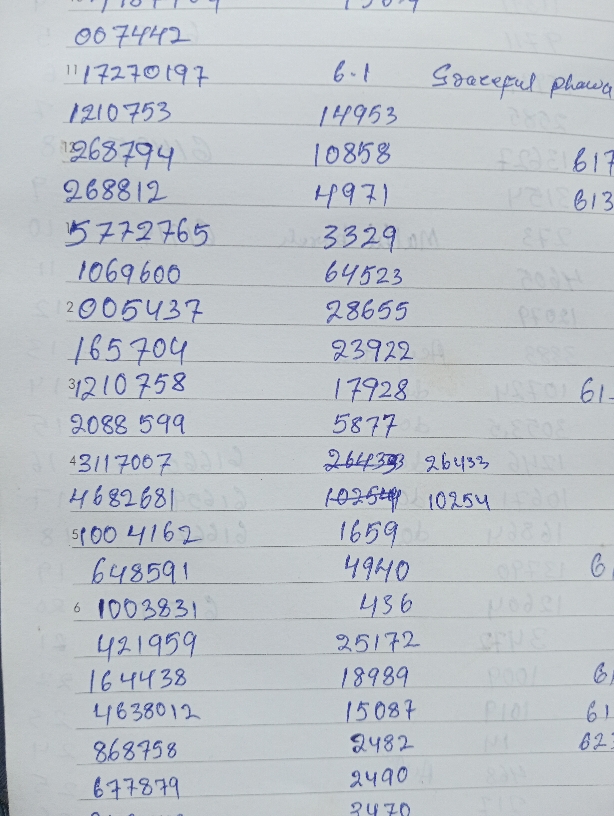 007442
11 17270197 6.1
1210753 14953
12 268794 10858 617
268812 4971 613
5772765 3329
1069600 64523
2 005437 28655
165704 23922
3 1210758 17928 61
2088599 5877
4 3117007 26433 26433
4682681 10254 10254
5 1004162 1659
648591 4940 6
6 1003831 436
421959 25172
164438 18989 61
4638012 15087 61
868758 2482 62
677879 2490
3470